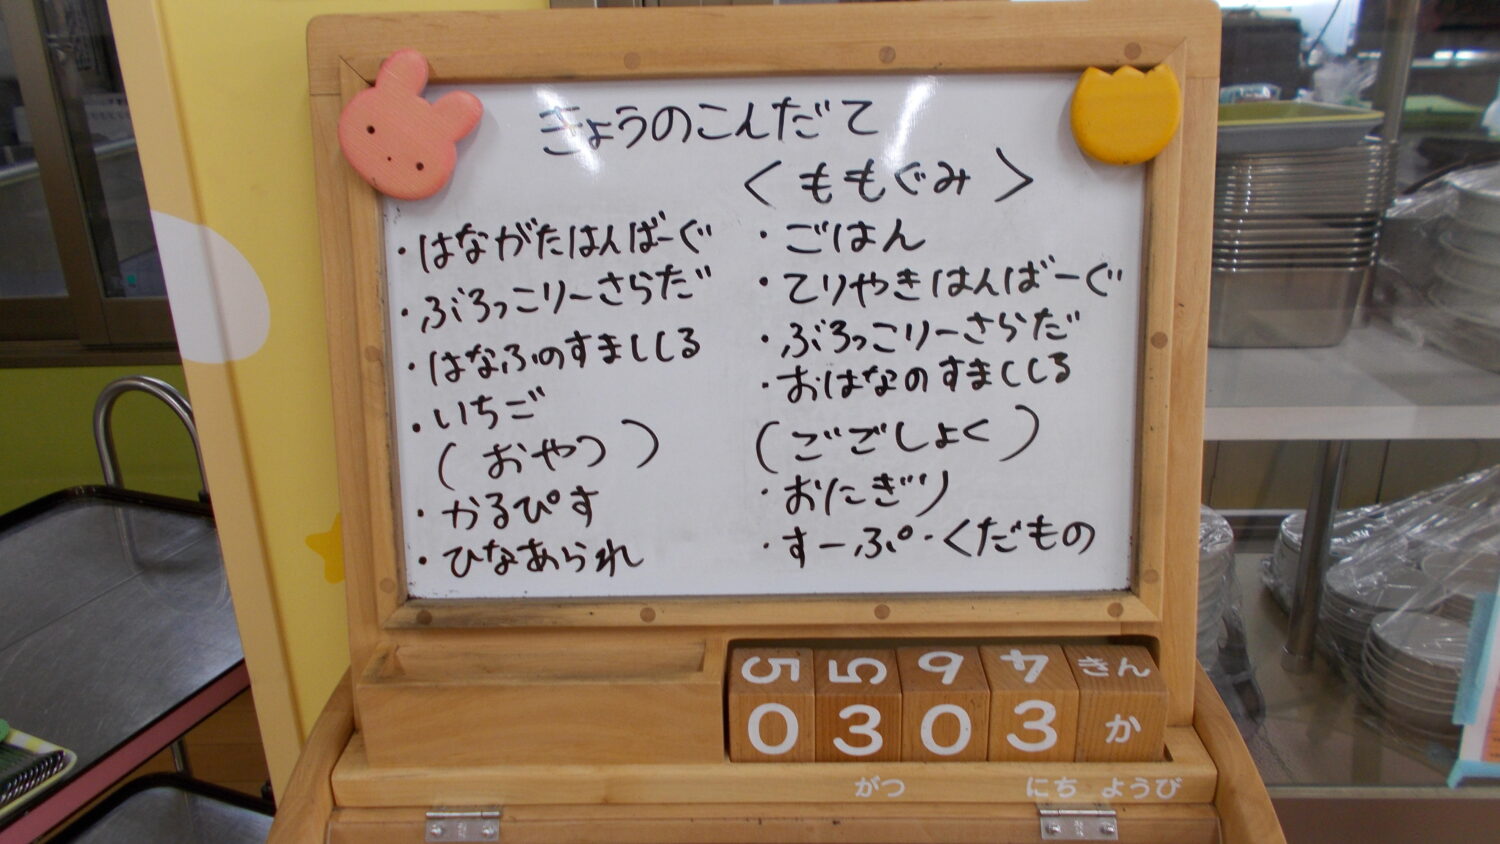 きょうのこんだて
・はながたはんばーぐ
・ぶろっこりーさらだ
・はなふのすまししる
・いちご
(おやつ)
・かるぴす
・ひなあられ
<ももぐみ>
・ごはん
・てりやきはんばーぐ
・ぶろっこりーさらだ
・おはなのすまししる
(ごごしょく)
・おにぎり
・すーぷ・くだもの
5 5 6 4 きん
0 3 0 3 か
がつ にち ようび